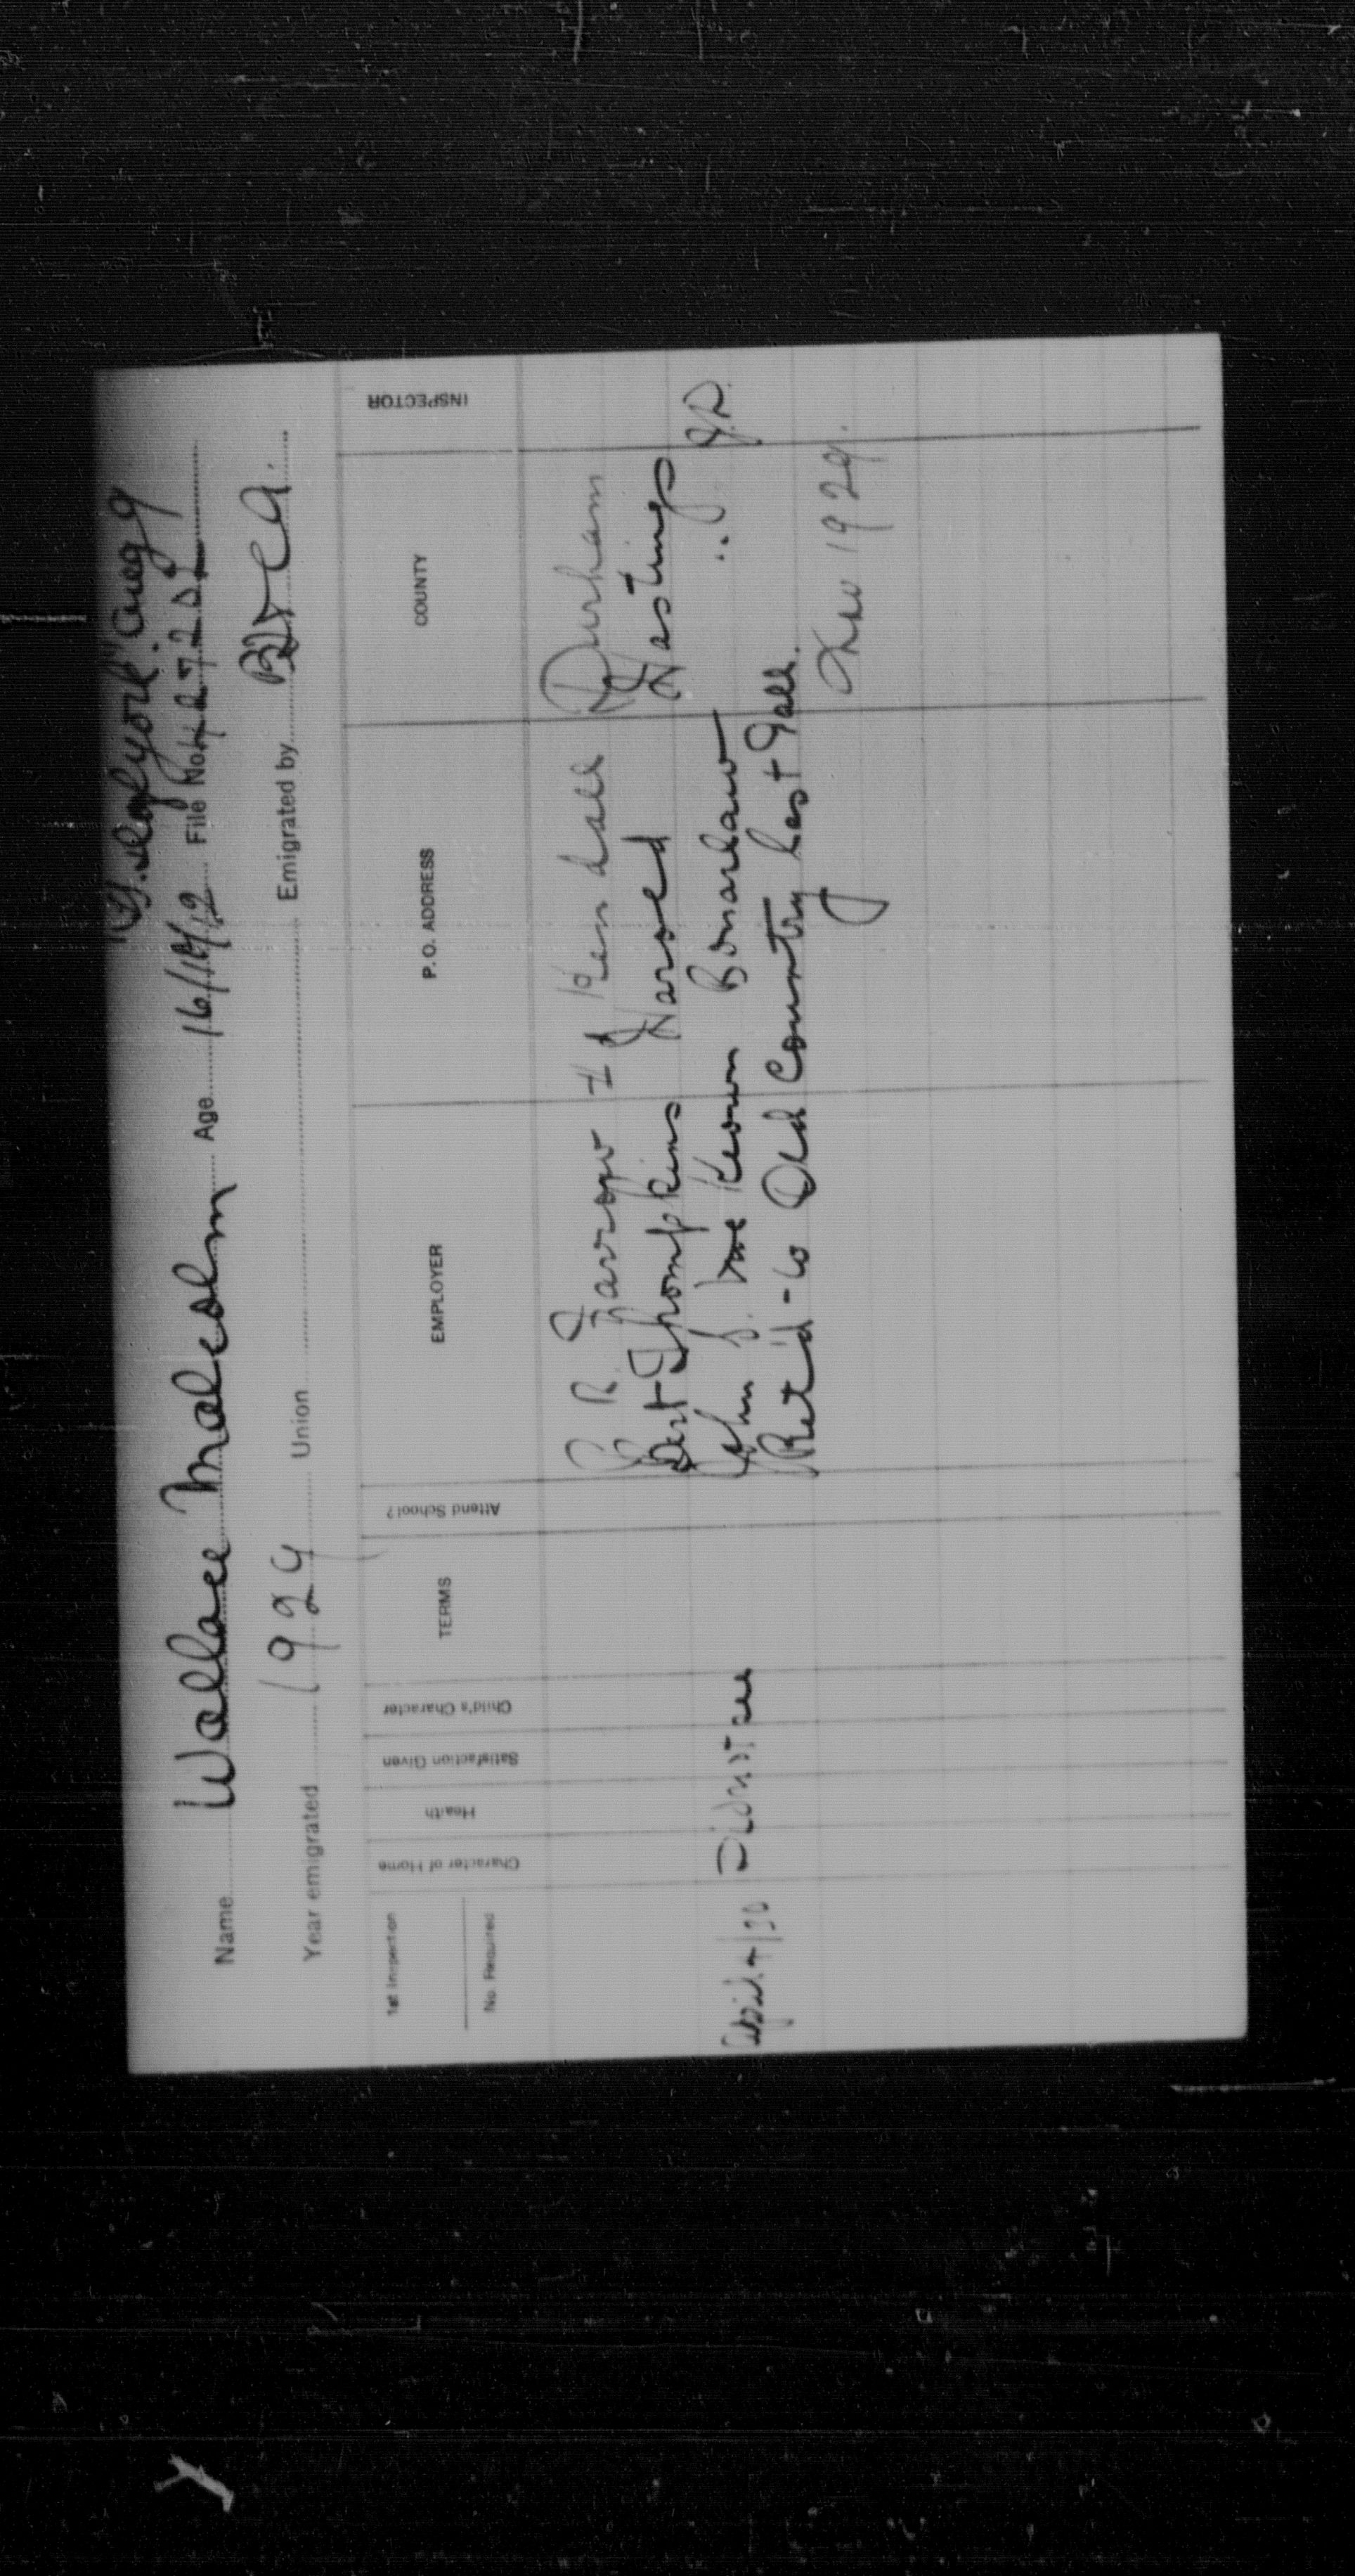 "D. of York" Aug 9
Name Wallace Malcolm Age 16/10/12 File No.
Year emigrated 1929 Union Emigrated by B.I.C.A.
1st Inspection
No. Required
Character of Home
Health
Satisfaction Given
Child's Character
TERMS
Attend School?
EMPLOYER
P.O. ADDRESS
COUNTY
INSPECTOR
C R Farrow Kendall Durham
Bert Thompkins Harold Hastings
April 4/30 Did not see John Mc Keown Bonarlaw " J.R.
Ret'd - to Old Country last Fall.
1929.